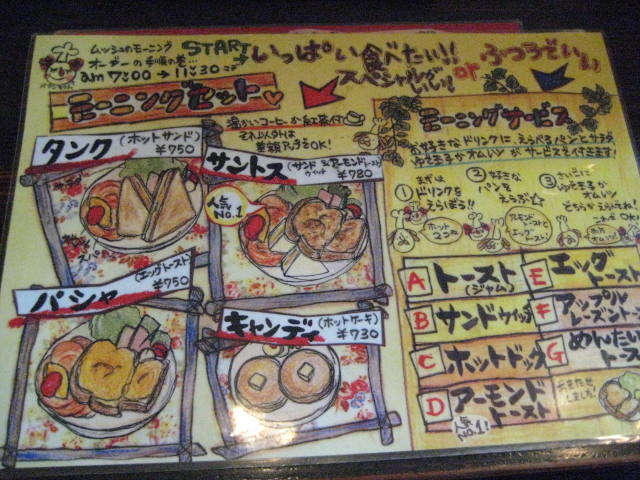 ムッシュのモーニング
オーダーの手順の巻…
START
am 7:00 → 11:30
いっぱい食べたい!!
スペシャルがいい!!
or
ふつうでいい
モーニングセット
温かいコーヒーか紅茶付
それ以外は
差額プラスでOK!
タンク
(ホットサンド)
¥750
サントス
(サンドウィッチ&アーモンドトースト)
¥780
人気No.1
パシャ
(エッグトースト)
¥750
キャンディ
(ホットケーキ)
¥730
モーニングサービス
お好きなドリンクに、えらべるパンとサラダ、
ゆでたまごかオムレツが、サービスで付きます!
① まずはドリンクをえらぼう!!
② 好きなパンをえらぶ☆
③ さいごにゆでたまごかオムレツ
どちらかえらんでね!
A トースト(ジャム)
B サンドウィッチ
C ホットドッグ
D アーモンドトースト
人気No.1!
E エッグトースト
F アップルレーズントースト
G めんたいトースト